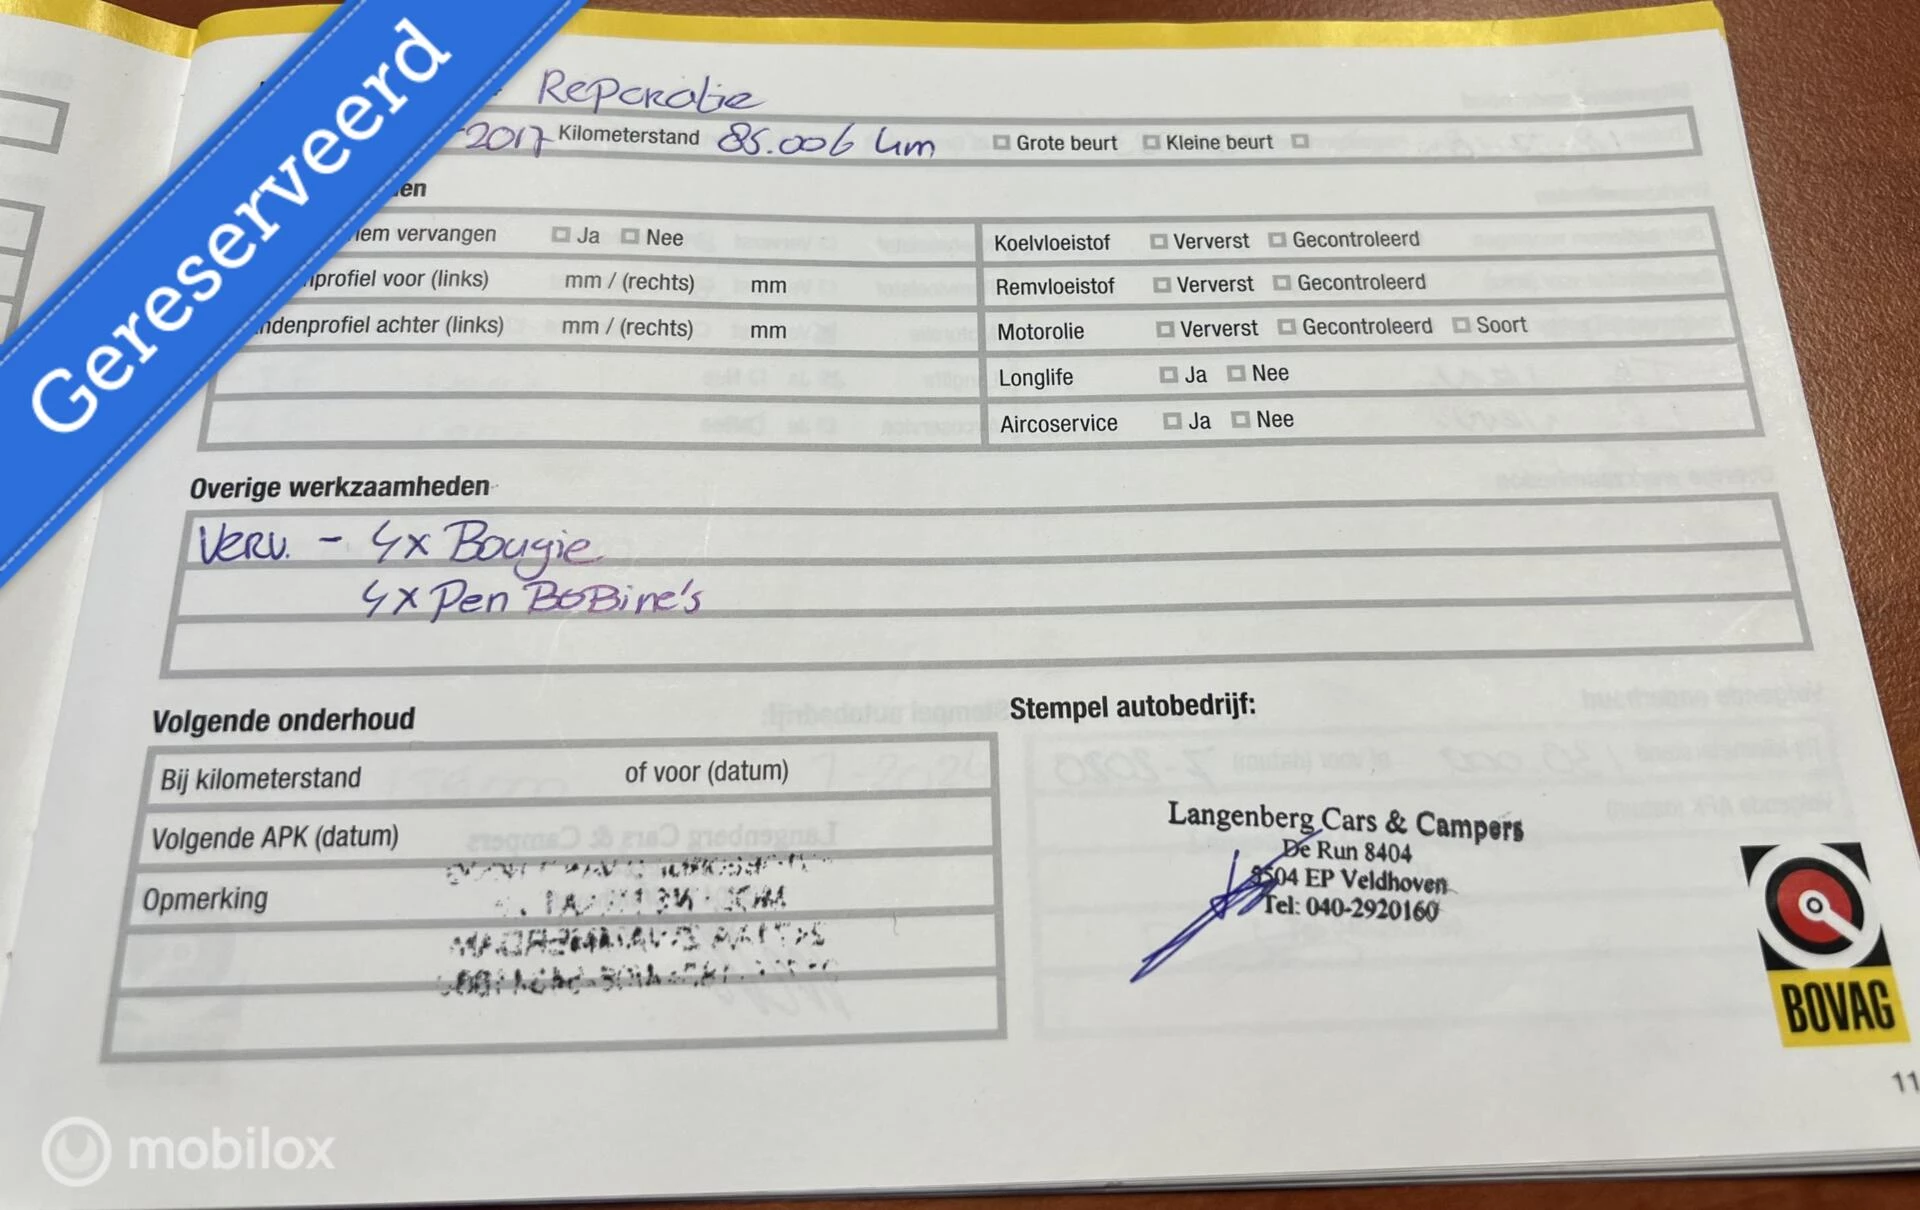 Gereserveerd
Reparatie
-2017 Kilometerstand 85.006 km Grote beurt Kleine beurt
en
iem vervangen Ja Nee
profiel voor (links) mm / (rechts) mm
ndenprofiel achter (links) mm / (rechts) mm
Koelvloeistof Ververst Gecontroleerd
Remvloeistof Ververst Gecontroleerd
Motorolie Ververst Gecontroleerd Soort
Longlife Ja Nee
Aircoservice Ja Nee
Overige werkzaamheden
Verv. - 4x Bougie
4x Pen BoBine's
Volgende onderhoud
Bij kilometerstand of voor (datum)
Volgende APK (datum)
Opmerking
Stempel autobedrijf:
Langenberg Cars & Campers
De Run 8404
5504 EP Veldhoven
Tel: 040-2920160
BOVAG
11
mobilox